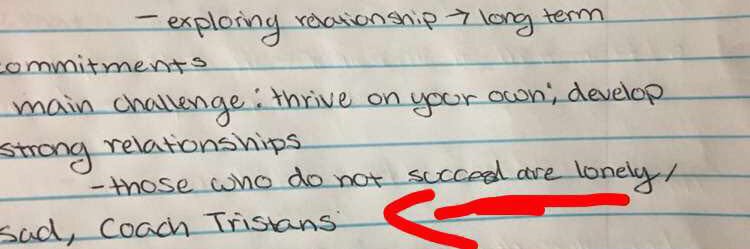 - exploring relationship → long term
commitments
main challenge: thrive on your own; develop
strong relationships
- those who do not succeed are lonely,
sad, Coach Tristans